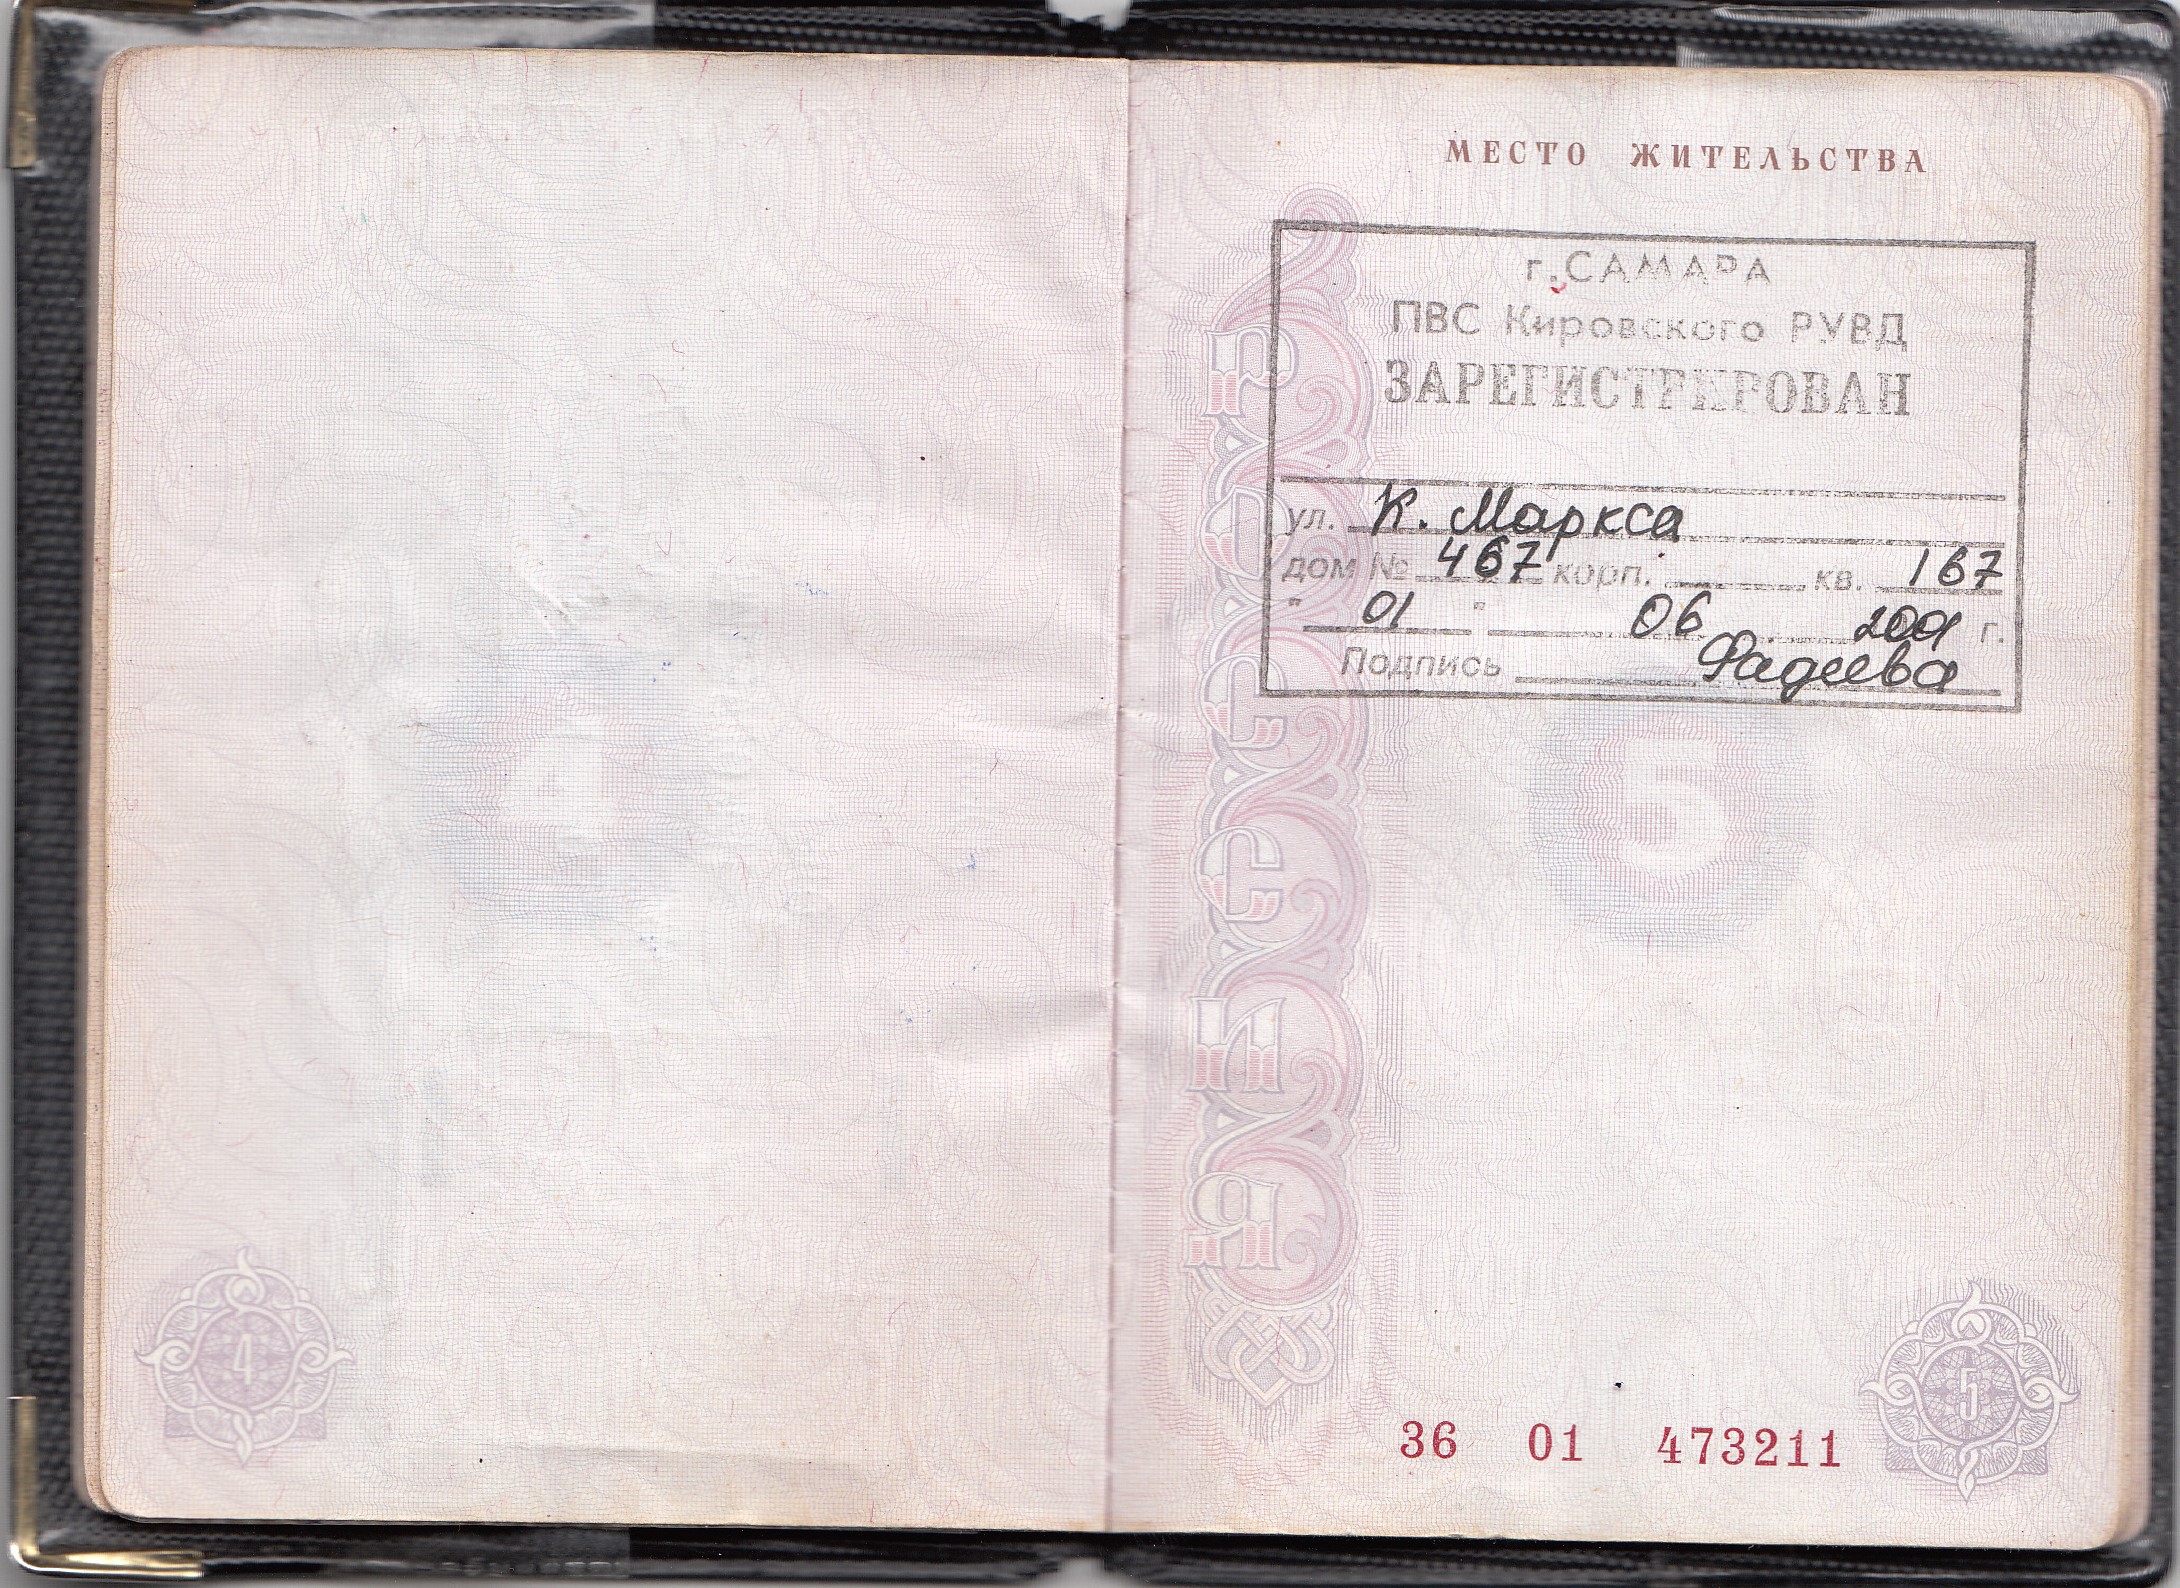 МЕСТО ЖИТЕЛЬСТВА
г. САМАРА
ПВС Кировского РУВД
ЗАРЕГИСТРИРОВАН
ул. К. Маркса
дом № 467 корп. кв. 167
" 01 " 06 2001 г.
Подпись Фадеева
РОССИЯ
5
4
4
5
36 01 473211